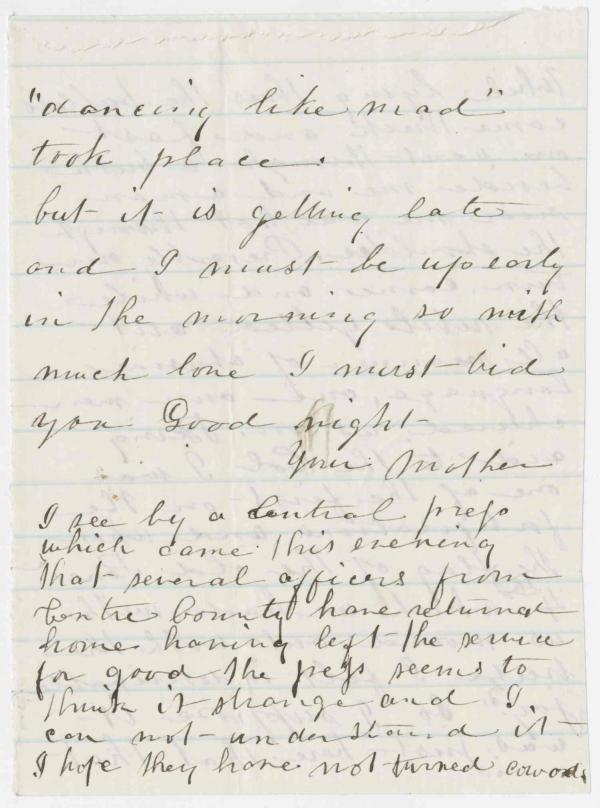 "dancing like mad"
took place.
but it is getting late
and I must be up early
in the morning so with
much love I must bid
you Good night
Your Mother
I see by a Central press
which came this evening
that several officers from
Centre County have returned
home having left the service
for good the press seems to
think it strange and I
can not understand it
I hope they have not turned cowards